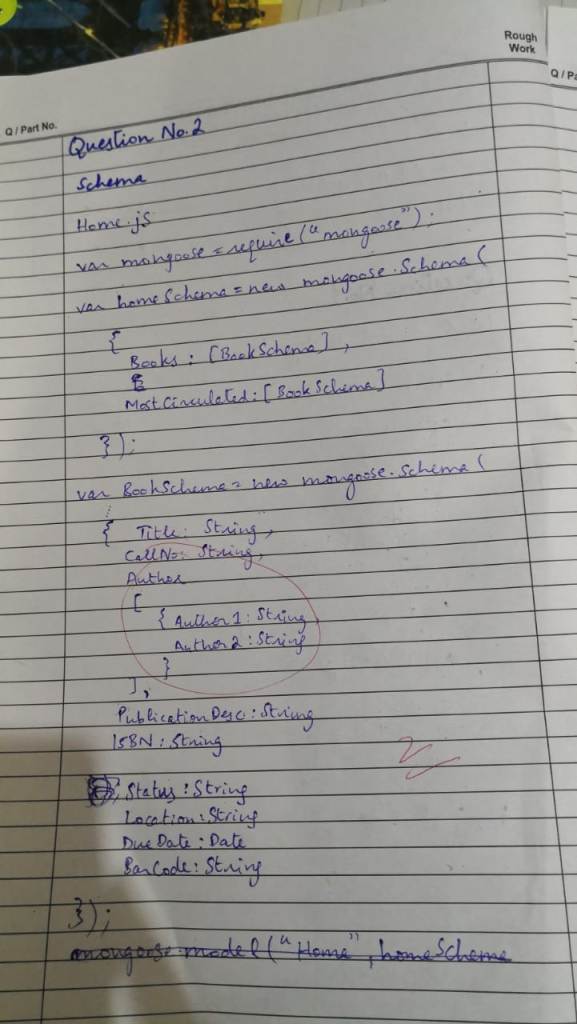 Rough
Work
Q / Part No.
Q / Pa
Question No. 2
Schema
Home.js
var mongoose = require("mongoose");
var homeSchema = new mongoose.Schema(
{
Books : [BookSchema] ,
MostCirculated : [BookSchema]
});
var BookSchema = new mongoose.Schema(
{ Title : String,
CallNo: String,
Author
[
{ Author1 : String,
Author2 : String
}
],
PublicationDesc : String
ISBN : String
Status : String
Location : String
DueDate : Date
BarCode : String
});
mongoose.model("Home", homeSchema